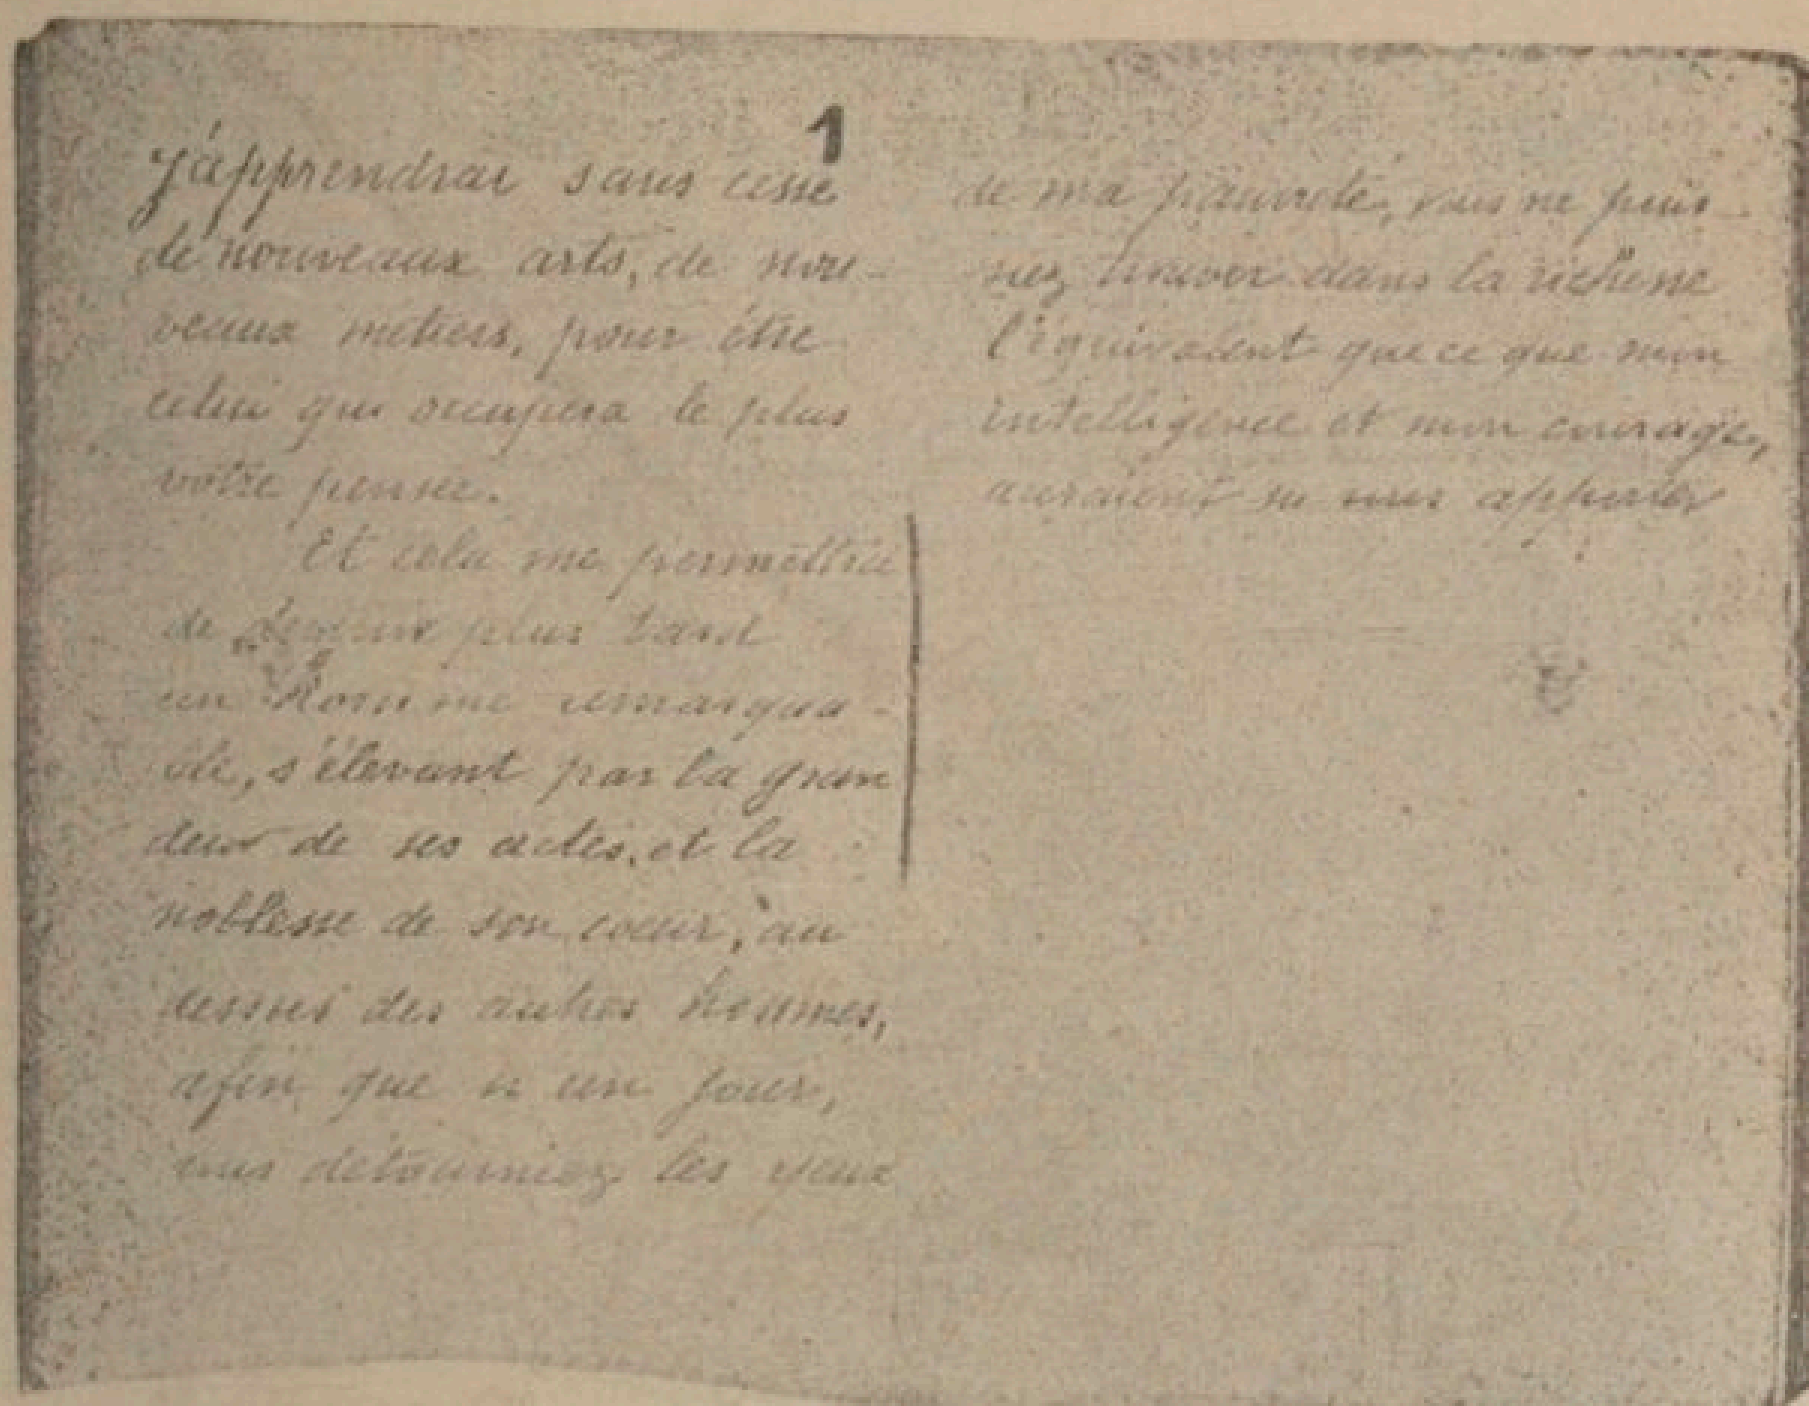 1
J'apprendrai sans cesse
de nouveaux arts, de nou-
veaux métiers, pour être
celui qui occupera le plus
votre pensée.
Et cela me permettra
de devenir plus tard
un homme remarqua-
ble, s'élevant par la gran
deur de ses actes, et la
noblesse de son coeur, au
dessus des autres hommes,
afin que si un jour,
vous détourniez les yeux
de ma pauvreté, vous ne puis-
siez trouver dans la richesse
l'équivalent que ce que mon
intelligence et mon courage,
auraient su vous apporter